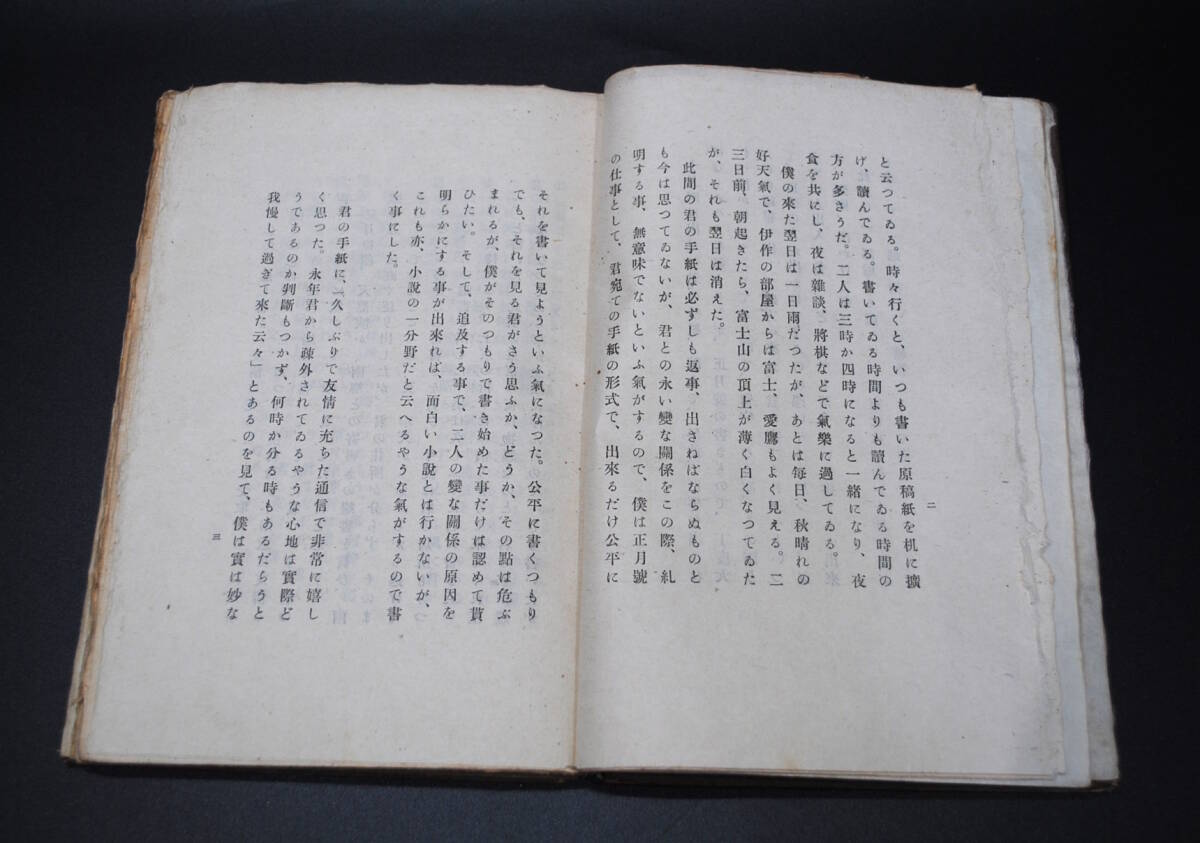 二
と云つてゐる。時々行くと、いつも書いた原稿紙を机に擴
げ、讀んでゐる。書いてゐる時間よりも讀んでゐる時間の
方が多さうだ。二人は三時か四時になると一緒になり、夜
食を共にし、夜は雜談、將棋などで氣樂に過してゐる。
僕の來た翌日は一日雨だつたが、あとは毎日、秋晴れの
好天氣で、伊作の部屋からは富士、愛鷹もよく見える。二
三日前、朝起きたら、富士山の頂上が薄く白くなつてゐた
が、それも翌日は消えた。
此間の君の手紙は必ずしも返事を出さねばならぬものと
も今は思つてゐないが、君との永い變な關係をこの際、糺
明する事、無意味でないといふ氣がするので、僕は正月號
の仕事として、君宛ての手紙の形式で、出來るだけ公平に
それを書いて見ようといふ氣になつた。公平に書くつもり
でも、それを見る君がさう思ふか、どうか、その點は危ぶ
まれるが、僕がそのつもりで書き始めた事だけは認めて貰
ひたい。そして、追及する事で、二人の變な關係の原因を
明らかにする事が出來れば、面白い小説とは行かないが、
これも亦、小説の一分野だと云へるやうな氣がするので書
く事にした。
君の手紙に、「久しぶりで友情に充ちた通信で非常に嬉し
く思つた。永年君から疎外されてゐるやうな心地は實際ど
うであるのか判斷もつかず、何時か分る時もあるだらうと
我慢して過ぎて來た云々」とあるのを見て、僕は實は妙な
三